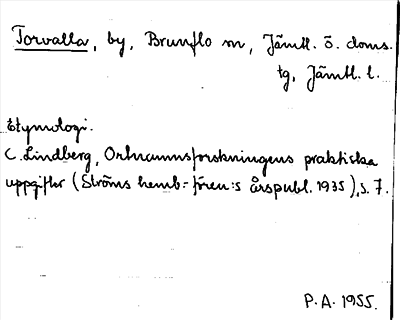 Torvalla, by, Brunflo sn, Jämtl. ö. doms.
tg, Jämtl. l.
Etymologi.
C. Lindberg, Ortnamnsforskningens praktiska
uppgifter (Ströms hemb.-fören:s årspubl. 1935), s. 7.
P.A. 1955.